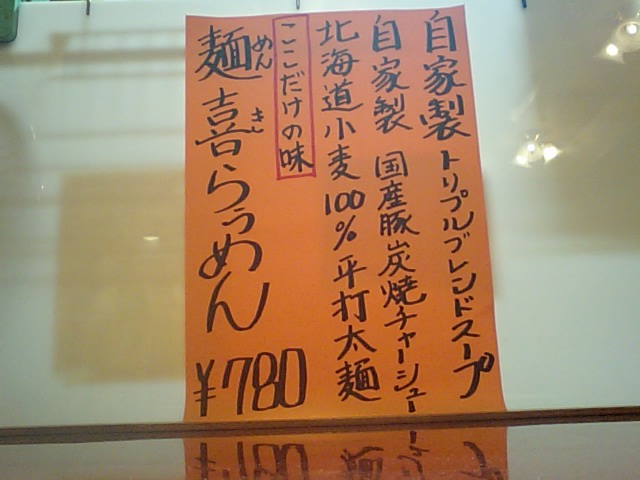 自家製トリプルブレンドスープ
自家製 国産豚炭焼チャーシュー
北海道小麦100%平打太麺
ここだけの味
麺喜らぅめん ¥780
めん
きし